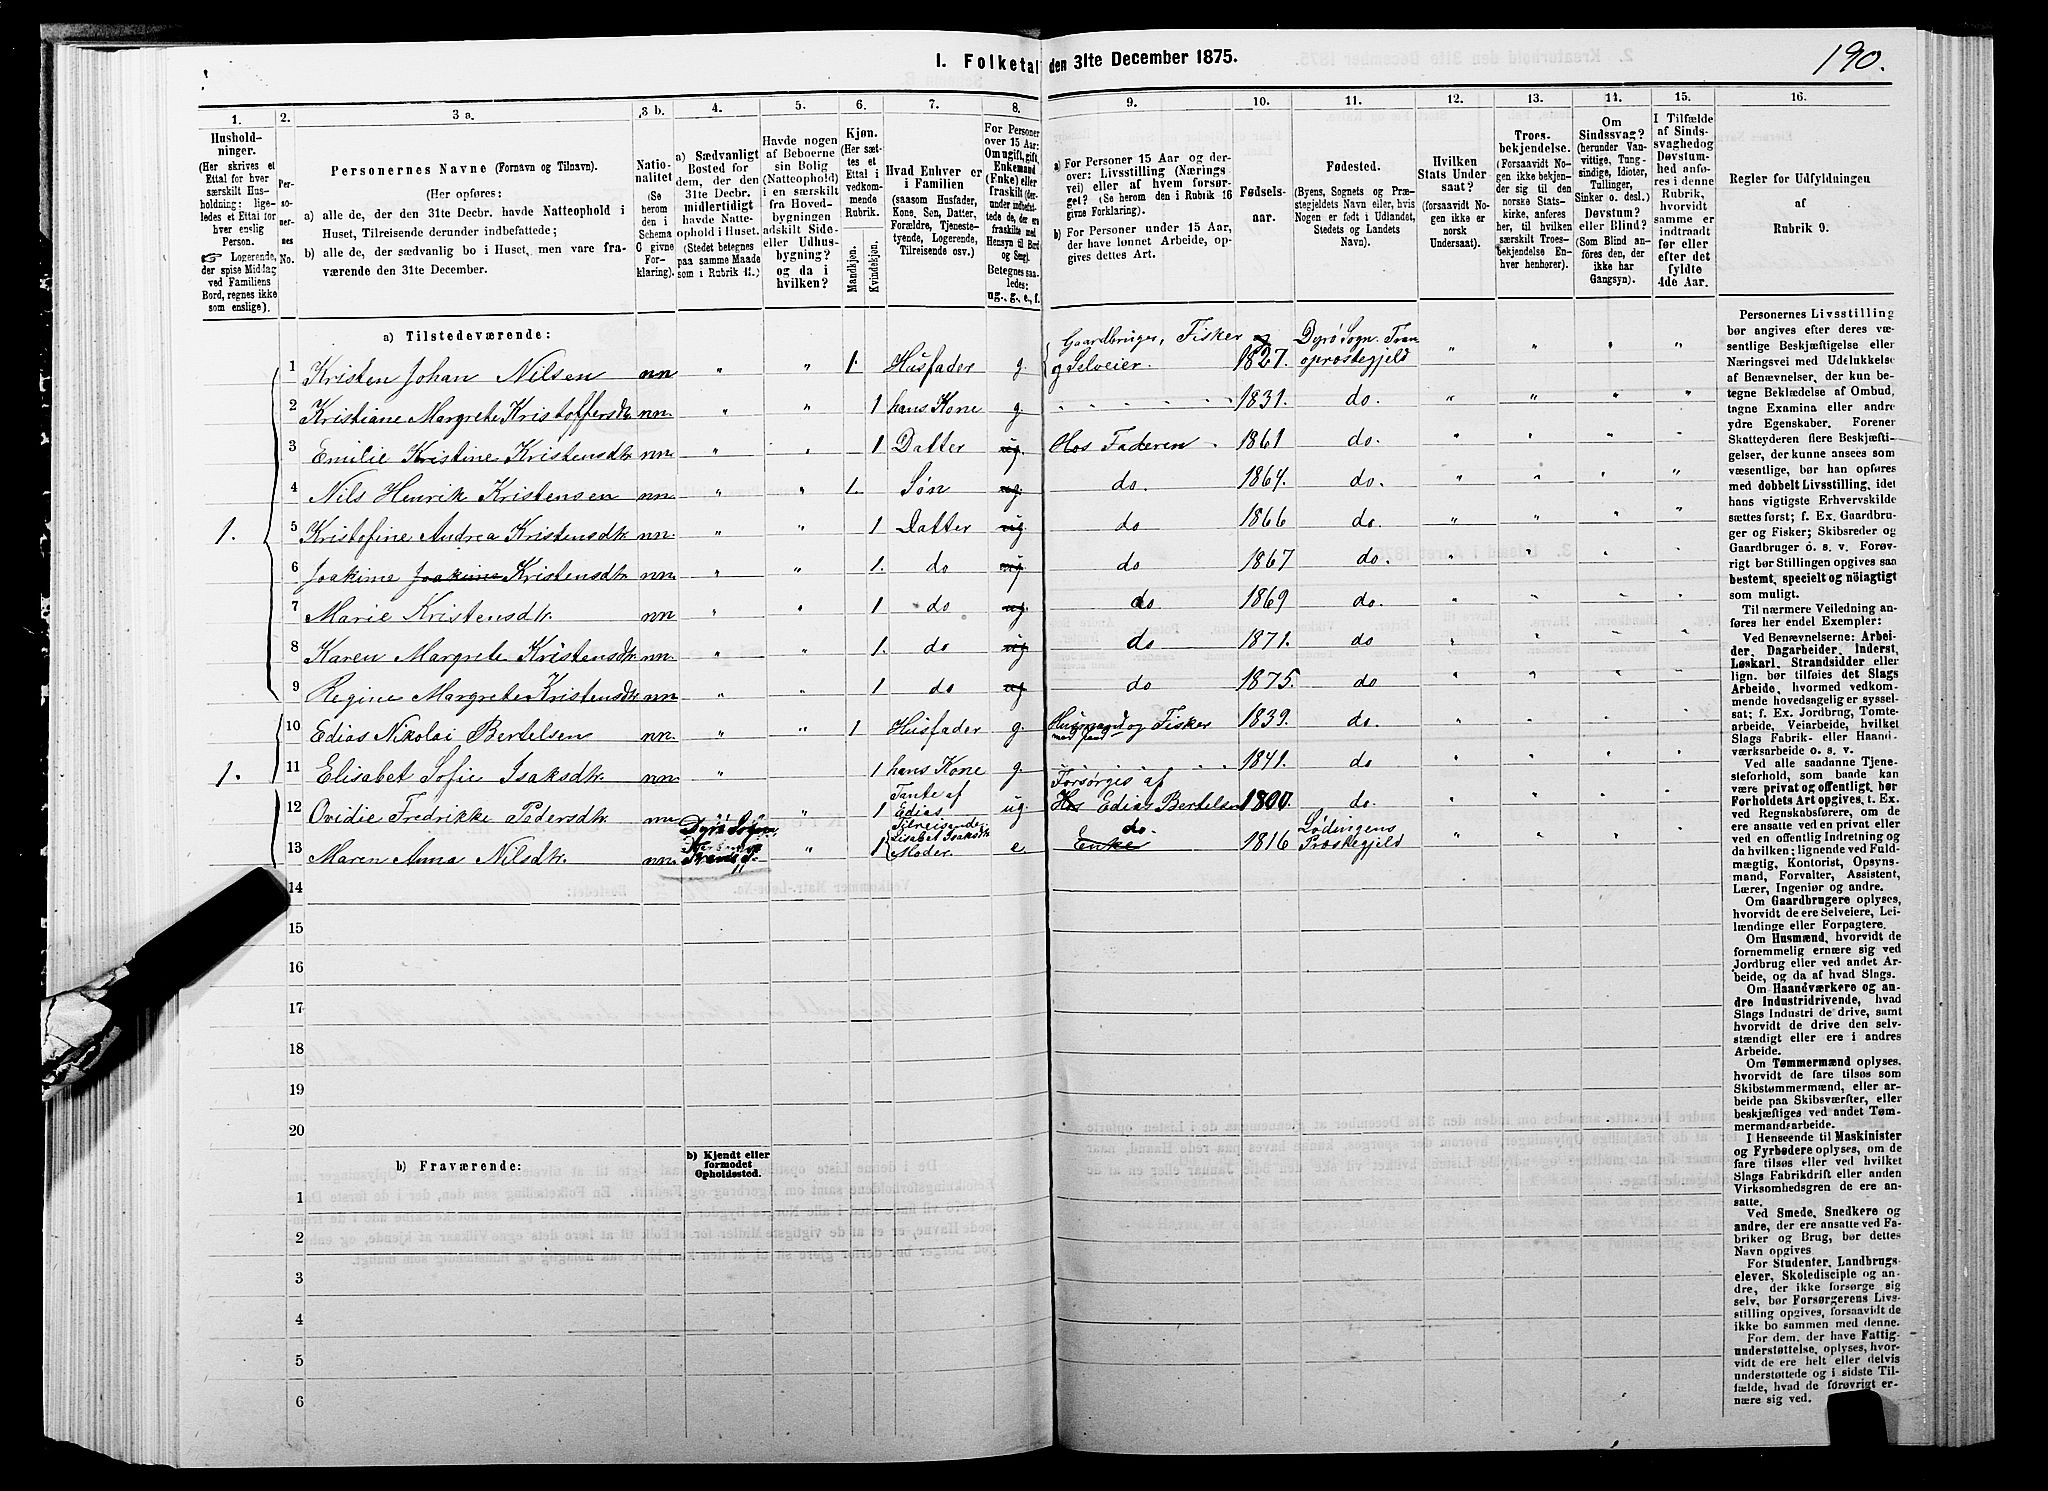 190.
I. Folketal den 31te December 1875.
1. 2. 3 a. 3 b. 4. 5. 6. 7. 8. 9. 10. 11. 12. 13. 14. 15. 16.
Hushold-
ninger.
(Her skrives et
Ettal for hver
særskilt Hus-
holdning; lige-
ledes et Ettal for
hver enslig
Person.
☞ Logerende,
der spise Middag
ved Familiens
Bord, regnes ikke
som enslige).
Per-
so-
ner-
nes
No.
Personernes Navne (Fornavn og Tilnavn).
(Her opføres:
a) alle de, der den 31te Decbr. havde Natteophold i
Huset, Tilreisende derunder indbefattede;
b) alle de, der sædvanlig bo i Huset, men vare fra-
værende den 31te December.
Natio-
nalitet
(Se
herom
den i
Schema
C givne
For-
klaring).
a) Sædvanligt
Bosted for
dem, der den
31te Decbr.
midlertidigt
havde Natte-
ophold i Huset.
(Stedet betegnes
paa samme Maade
som i Rubrik 11.)
Havde nogen
af Beboerne
sin Bolig
(Natteophold)
i en særskilt
fra Hoved-
bygningen
adskilt Side-
eller Udhus-
bygning?
og da i
hvilken?
Kjøn.
(Her sæt-
tes et
Ettal i
vedkom-
mende
Rubrik.
Mandkjøn.
Kvindekjøn.
Hvad Enhver er
i Familien
(saasom Husfader,
Kone, Søn, Datter,
Forældre, Tjeneste-
tyende, Logerende,
Tilreisende osv.)
For Personer
over 15 Aar:
Om ugift, gift,
Enkemand
(Enke) eller
fraskilt (der-
under indbefat-
tede de, der ere
fraskilte med
Hensyn til Bord
og Seng).
Betegnes saa-
ledes:
ug., g., e., f.
a) For Personer 15 Aar og der-
over: Livsstilling (Nærings
vei) eller af hvem forsør-
get? (Se herom den i Rubrik 16
givne Forklaring).
b) For Personer under 15 Aar,
der have lønnet Arbeide, op-
gives dettes Art.
Fødsels-
aar.
Fødested.
(Byens, Sognets og Præ-
stegjeldets Navn eller, hvis
Nogen er født i Udlandet,
Stedets og Landets
Navn).
Hvilken
Stats Under
saat?
(forsaavidt No-
gen ikke er
norsk
Undersaat).
Troes-
bekjendelse.
(Forsaavidt No-
gen ikke bekjen-
der sig til den
norske Stats-
kirke, anføres
her, til hvilken
særskilt Troes-
bekjendelse En-
hver henhører).
Om
Sindssvag?
(herunder Van-
vittige, Tung-
sindige, Idioter,
Tullinger,
Sinker o. desl.)
Døvstum?
eller Blind?
(Som Blind an-
føres den, der
ikke har
Gangsyn).
I Tilfælde
af Sinds-
svaghed og
Døvstum-
hed anfø-
res i denne
Rubrik,
hvorvidt
samme er
indtraadt
før eller
efter det
fyldte
4de Aar.
Regler for Udfyldningen
af
Rubrik 9.
a) Tilstedeværende:
1 Kristen Johan Nilsen nn " " 1. Husfader g. Gaardbruger, Fisker og Selveier. 1827. Dyrö Sogn. Tranö præstegjeld
2 Kristiane Margrete Kristoffersdtr. nn. " " 1 hans Kone g. 1831. do.
3 Emilie Kristine Kristensdtr nn. " " 1 Datter ug. Hos Faderen 1861 do.
4 Nils Henrik Kristensen nn. " " 1. Søn ug. do. 1864. do.
1. 5 Kristofine Andrea Kristensdtr. nn. " " 1 Datter ug. do 1866 do.
6 Joakime Joakime Kristensdtr. nn. " " 1. do ug do 1867 do.
7 Marie Kristensdtr. nn " " 1 do ug. do 1869 do.
8 Karen Margrete Kristensdtr. nn. " " 1. do ug do 1871. do
9 Regine Margrete Kristensdtr nn. " " 1 do ug do 1875. do
10 Edias Nikolai Bertelsen nn. " " 1 Husfader g. Husmand og Fisker med jord 1839. do
1. 11 Elisabet Sofie Isaksdtr. nn. " 1 hans Kone g 1841. do
12 Ovidie Fredrikke Pedersdtr. nn " 1 Tante af Edias ug. Forsørges af Hos Edias Bertelsen 1800. do.
13 Maren Anna Nilsdtr. nn. Dyrö Sogn " 1 Tilreisende Lisabet Isaksdtr Moder. e do. Enke 1816 Lödingens Præstegjeld
14
15
16
17
18
19
20
b) Fraværende:
b) Kjendt eller
formodet
Opholdssted.
1
2
3
4
5
6
Personernes Livsstilling
bør angives efter deres væ-
sentlige Beskjæftigelse eller
Næringsvei med Udelukkelse
af Benævnelser, der kun be-
tegne Beklædelse af Ombud,
tagne Examina eller andre
ydre Egenskaber. Forener
Skatteyderen flere Beskjæfti-
gelser, der kunne ansees som
væsentlige, bør han opføres
med dobbelt Livsstilling, idet
hans vigtigste Erhvervskilde
sættes først; f. Ex. Gaardbru-
ger og Fisker; Skibsreder og
Gaardbruger o. s. v. Forøv-
rigt bør Stillingen opgives saa
bestemt, specielt og nöiagtigt
som muligt.
Til nærmere Veiledning an-
føres her endel Exempler:
Ved Benævnelserne: Arbei-
der, Dagarbeider, Inderst,
Løskarl, Strandsidder eller
lign. bør tilføies det Slags
Arbeide, hvormed vedkom-
mende hovedsagelig er syssel-
sat; f. Ex. Jordbrug, Tomte-
arbeide, Veiarbeide, hvilket
Slags Fabrik- eller Haand-
værksarbeide o. s. v.
Ved alle saadanne Tjene-
steforhold, som baade kan
være privat og offentligt, bør
Forholdets Art opgives, t. Ex.
ved Regnskabsførere, om de
ere ansatte ved en privat eller
ved en offentlig Indretning og
da hvilken; lignende ved Fuld-
mægtig, Kontorist, Opsyns-
mand, Forvalter, Assistent,
Lærer, Ingeniør og andre.
Om Gaardbrugere oplyses,
hvorvidt de ere Selveiere, Lei-
lændinge eller Forpagtere.
Om Husmænd, hvorvidt de
fornemmelig ernære sig ved
Jordbrug eller ved andet Ar-
beide, og da af hvad Slags.
Om Haandværkere og an-
dre Industridrivende, hvad
Slags Industri de drive, samt
hvorvidt de drive den selv-
stændigt eller ere i andres
Arbeide.
Om Tømmermænd oplyses,
hvorvidt de fare tilsøs som
Skibstømmermænd, eller ar-
beide paa Skibsværfter, eller
beskjæftiges ved andet Tøm-
mermandsarbeide.
I Henseende til Maskinister
og Fyrbødere oplyses, om de
fare tilsøs eller ved hvilket
Slags Fabrikdrift eller anden
Virksomhedsgren de ere an-
satte.
Ved Smede, Snedkere og
andre, der ere ansatte ved Fa-
briker og Brug, bør dettes
Navn opgives
For Studenter, Landbrugs-
elever, Skoledisciple og an-
dre, der ikke forsørge sig
selv, bør Forsørgerens Livs-
stilling opgives, forsaavidt de
ikke bo sammen med denne.
For dem, der have Fattig-
understøttelse, oplyses, hvor-
vidt de ere helt eller delvis
understøttede og i sidste Til-
fælde, hvad de forøvrigt er-
nære sig ved.